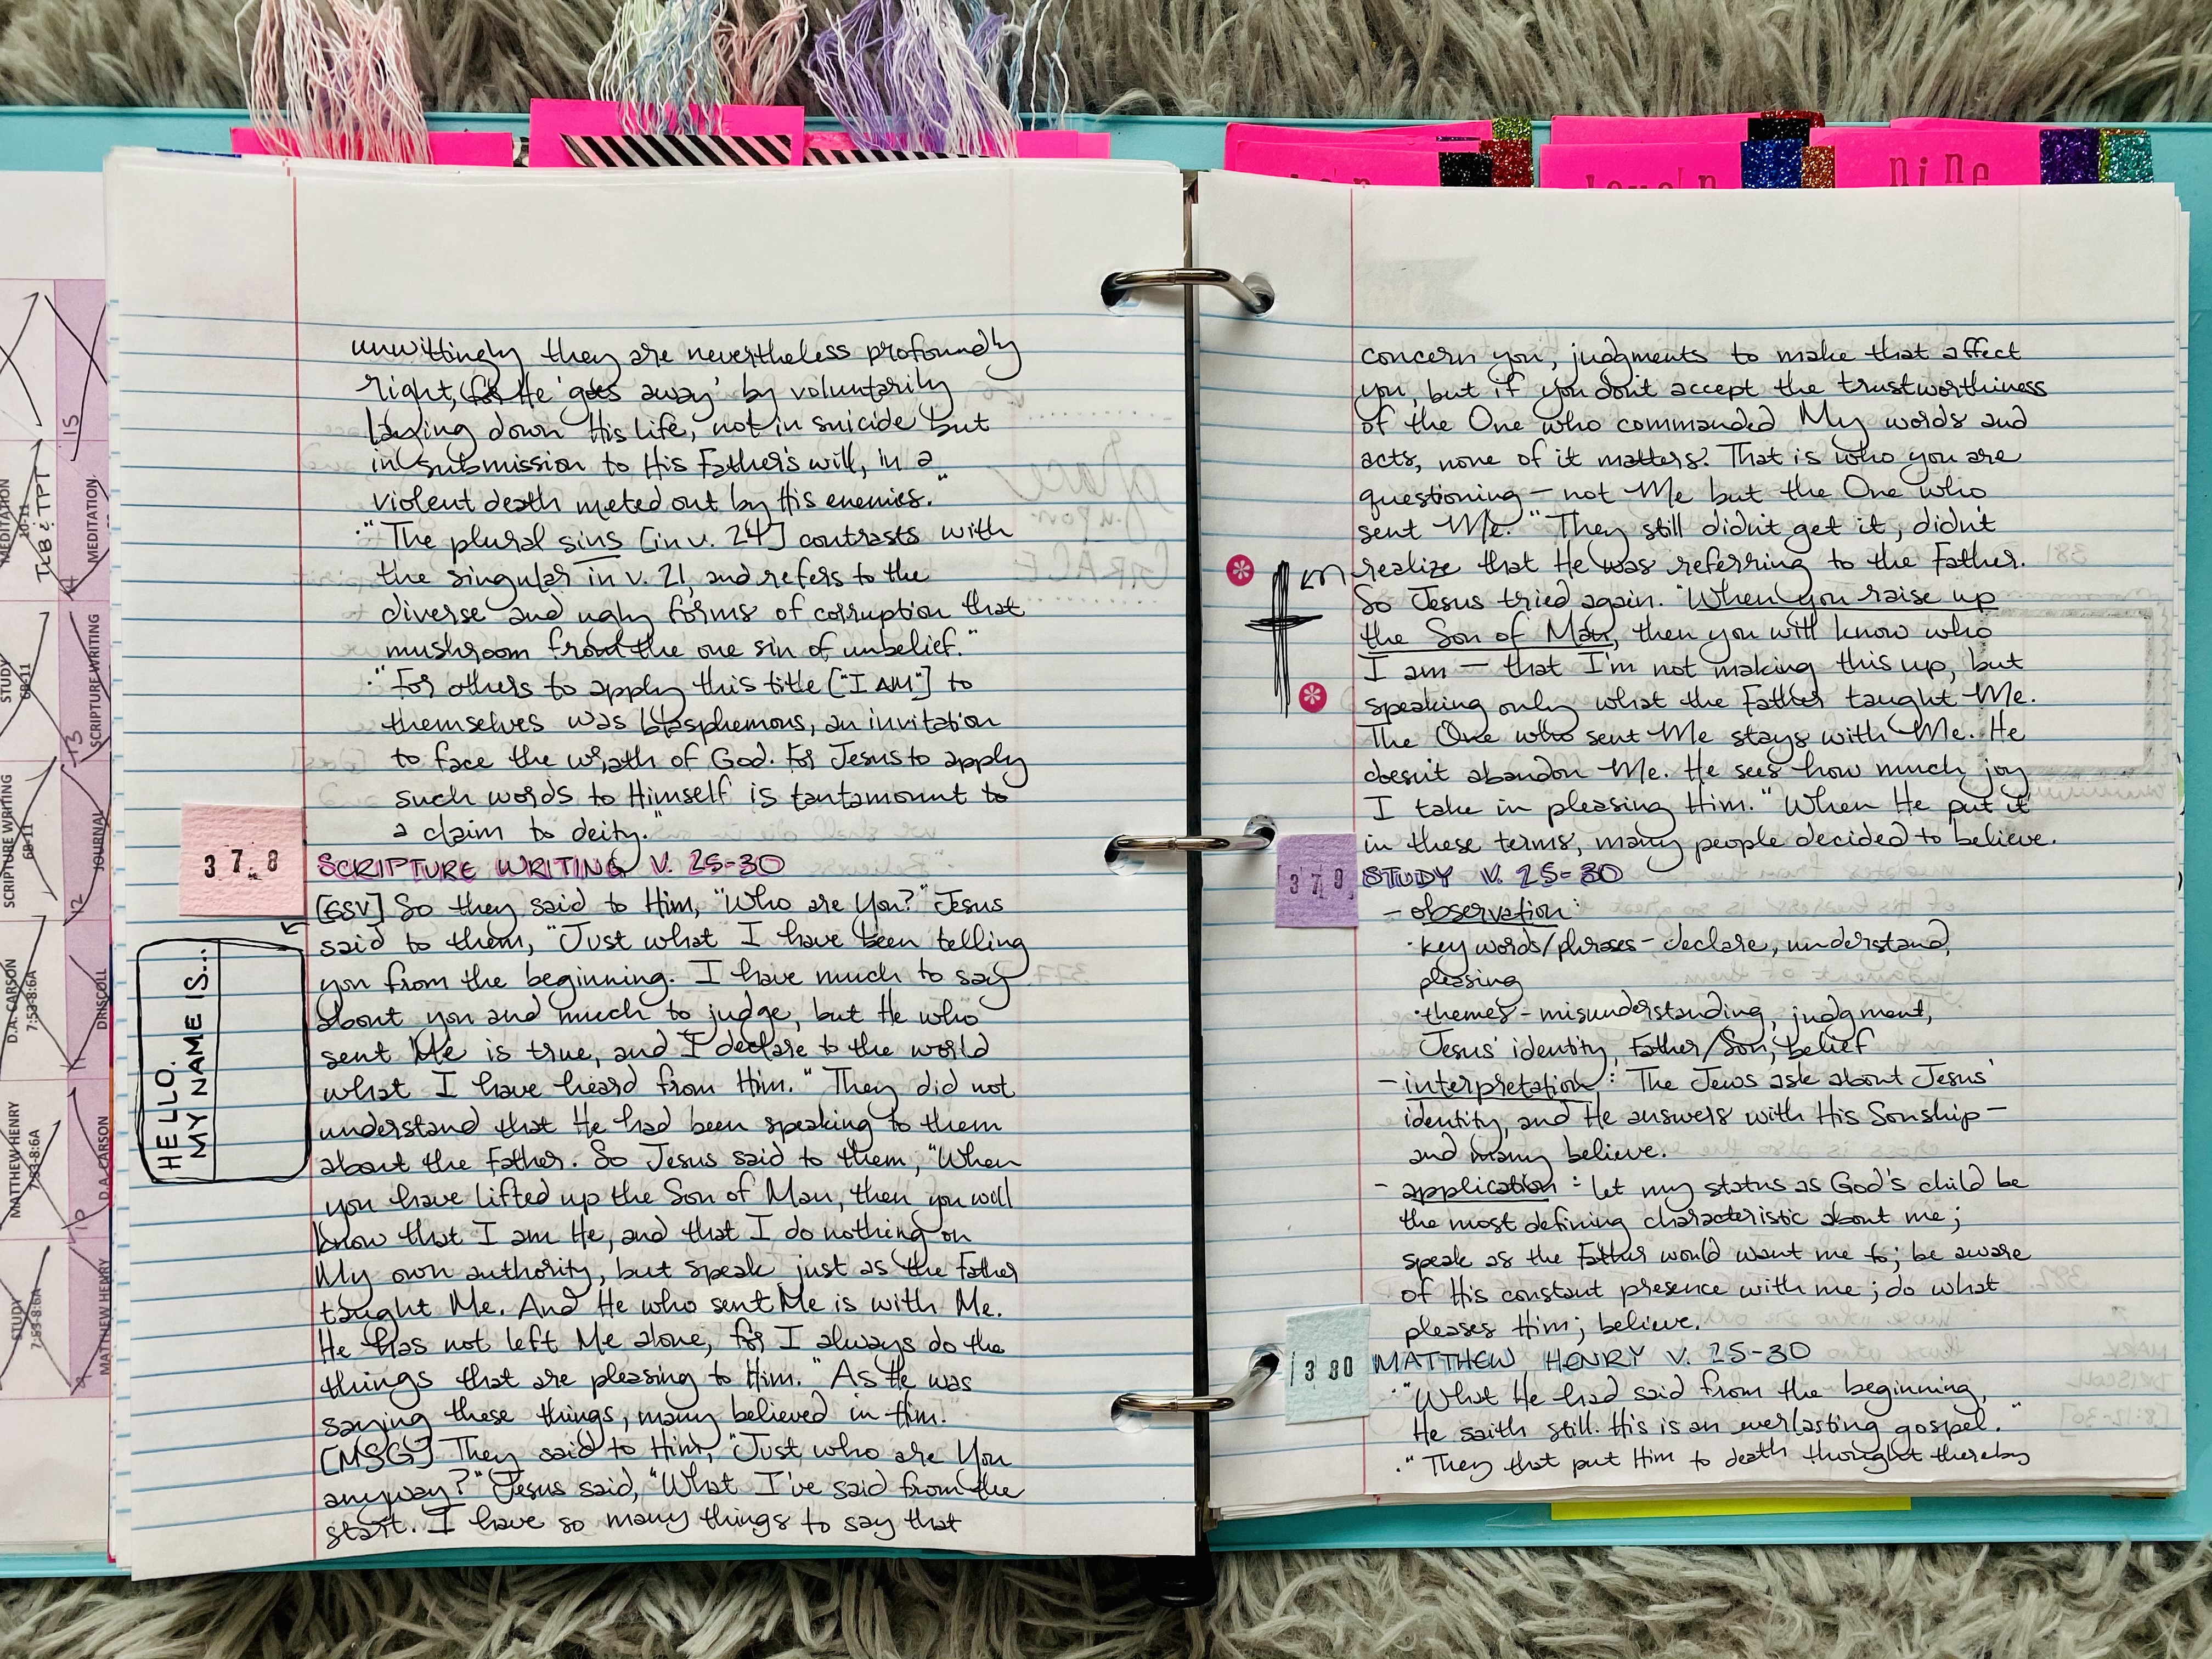 nine
unwittingly they are nevertheless profoundly
right, for He 'goes away' by voluntarily
laying down His life, not in suicide but
in submission to His Father's will, in a
violent death meted out by His enemies."
·"The plural sins [in v. 24] contrasts with
the singular in v. 21, and refers to the
diverse and ugly forms of corruption that
mushroom from the one sin of unbelief."
·"For others to apply this title ["I AM"] to
themselves was blasphemous, an invitation
to face the wrath of God. For Jesus to apply
such words to Himself is tantamount to
a claim to deity."
378
SCRIPTURE WRITING V. 25-30
[ESV] So they said to Him, "Who are You?" Jesus
said to them, "Just what I have been telling
you from the beginning. I have much to say
about you and much to judge, but He who
sent Me is true, and I declare to the world
what I have heard from Him." They did not
understand that He had been speaking to them
about the Father. So Jesus said to them, "When
you have lifted up the Son of Man, then you will
know that I am He, and that I do nothing on
My own authority, but speak just as the Father
taught Me. And He who sent Me is with Me.
He has not left Me alone, for I always do the
things that are pleasing to Him." As He was
saying these things, many believed in Him.
[MSG] They said to Him, "Just who are You
anyway?" Jesus said, "What I've said from the
start. I have so many things to say that
HELLO.
MY NAME IS...
concern you, judgments to make that affect
you, but if you don't accept the trustworthiness
of the One who commanded My words and
acts, none of it matters. That is who you are
questioning — not Me but the One who
sent Me." They still didn't get it, didn't
realize that He was referring to the Father.
So Jesus tried again. "When you raise up
the Son of Man, then you will know who
I am — that I'm not making this up, but
speaking only what the Father taught Me.
The One who sent Me stays with Me. He
doesn't abandon Me. He sees how much joy
I take in pleasing Him." When He put it
in these terms, many people decided to believe.
379
STUDY V. 25-30
- observation:
·key words/phrases - declare, understand,
pleasing
·themes - misunderstanding, judgment,
Jesus' identity, Father/Son, belief
- interpretation: The Jews ask about Jesus'
identity, and He answers with His Sonship —
and many believe.
- application: let my status as God's child be
the most defining characteristic about me;
speak as the Father would want me to; be aware
of His constant presence with me; do what
pleases Him; believe.
380
MATTHEW HENRY V. 25-30
·"What He had said from the beginning,
He saith still. His is an everlasting gospel."
·"They that put Him to death thought thereby
15
MEDITATION
TLB & TPT
14
MEDITATION
STUDY
SCRIPTURE WRITING
13
SCRIPTURE WRITING
JOURNAL
12
D.A. CARSON
7:53-8:6A
DRISCOLL
11
MATTHEW HENRY
7:53-8:6A
D.A. CARSON
10
STUDY
7:53-8:6A
MATTHEW HENRY
9